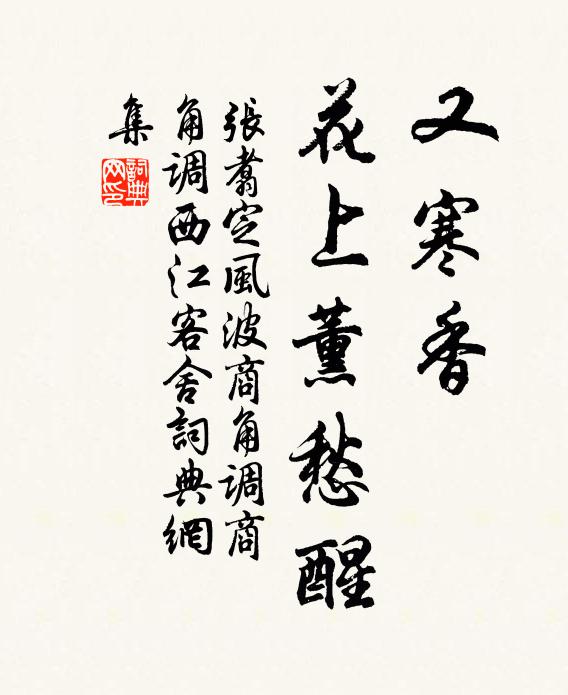 又寒香
花上薰愁醒
張翥定風波商角调商
角调西江客舍詞典網
集
詞典网印